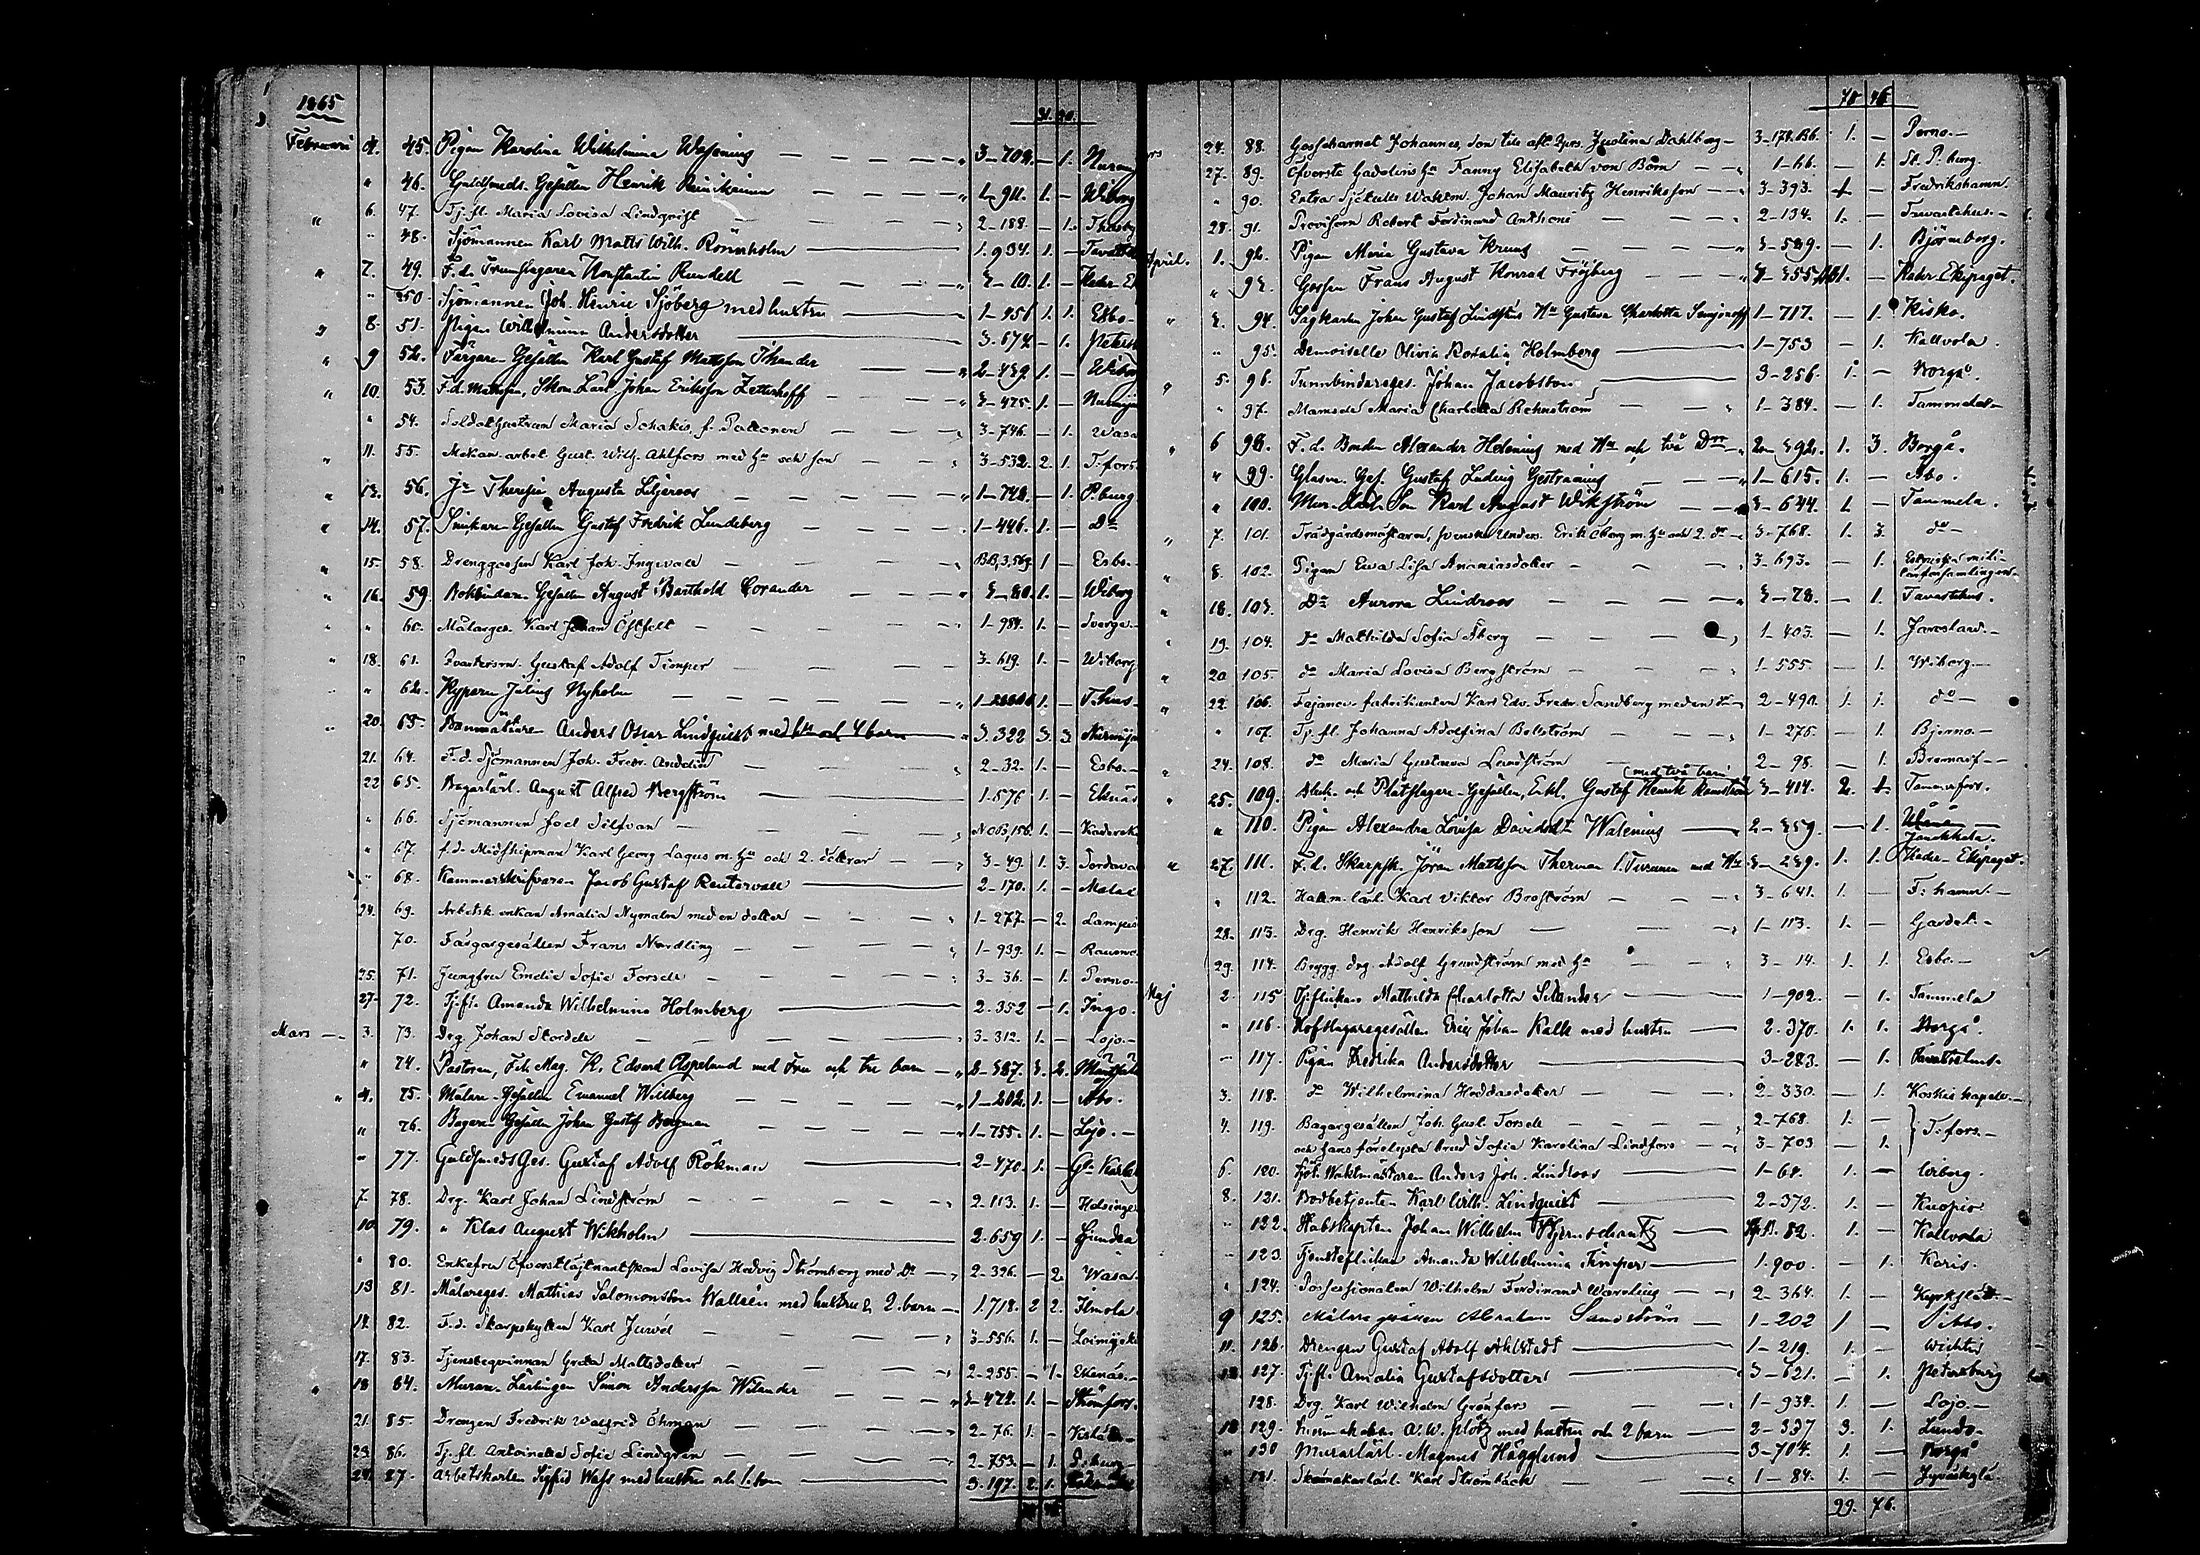 1865
31. 20.
Februari 4. 45. Pigan Karolina Wilhelmina Wasenius 3-702. — 1.
" 46. Guldsmeds Gesällen Henrik 1-911. 1. — Wiborg
" 6. 47. Tj. fl. Maria Lovisa Lindqvist 2-188. — 1. Thusby
" 48. Sjömannen Karl Matts Wilh. Rönnholm 1.934. 1. —
" 7. 49. F.d. Trumslagaren Konstantin Rundell 3-10. 1. —
" 50. Sjömannen Joh. Henric Sjöberg med hustru 1-951 1. 1. Esbo
" 8. 51. Pigan Wilhelmina Andersdotter 3.672 — 1.
" 9 52. Färgare Gesällen Karl Gustaf Mattsson Thander 2-439 1. — Wiborg
" 10. 53. F.d. Skom. Lärl. Johan Eriksson Zetterhoff 3-475. 1. —
" 54. Soldathustrun Maria f. Pakkonen 3-746. — 1. Wasa
" 11. 55. Mekan. arbet. Gust. Wilh. Ahlfors med Hu och son 3-532. 2. 1. T:fors
" 13. 56. Jr Theresia Augusta Liljeroos 1-748. — 1. P:burg
" 14. 57. Snikare Gesällen Gustaf Fredrik Lundeberg 1-446. 1. — Do
" 15. 58. Drenggossen Karl Joh. Ingevall BB,3,563. 1 — Esbo.
" 16. 59. Bokbindare Gesällen August Barthold Corander 3-80. 1. — Wiborg
" " 60. Målarges. Karl Johan Östfelt 1-984. 1. — Sverge
" 18. 61. Gustaf Adolf Timper 3-619. 1. — Wiborg
" 62. Kyparn Julius Nyholm 1. — T:hus
" 20. 63. Banmästaren Anders Oscar Lindquist med Hu och 4 barn 3.322 3. 3.
21. 64. F.d. Sjömannen Joh. Fredr. Andelin 2-32. 1. — Esbo
22 65. Bagarlärl. August Alfred Bergström 1.576 1. — Ekenäs
" 66. Sjömannen Joel Silfvan NCB,156. 1. —
" 67. f.d. Midshipman Karl Georg Lagus m. Hu och 2. döttrar 3-49. 1. 3. Sordava
" 68. Kammarskrifvaren Jacob Gustaf Reuterwall 2-170. 1. —
24. 69. Arbetsk. enkan Amalia Nyman med en dotter 1-277. — 2. Lampis
70. Färgargesällen Frans Nordling 1-939. 1. — Raumo
25. 71. Jungfru Emelie Sofie Forsell 3-36. — 1. Perno
27. 72. Tj. fl. Amanda Wilhelmina Holmberg 2.352 — 1. Ingo.
Mars 3. 73. Drg. Johan Stordell 3-312. 1. — Lojo.
" 74. Pastoren, Fil. Mag. K. Edvard Aspelund med Fru och tre barn 2-387. 3. 2.
" 4. 75. Målare Gesällen Emanuel Willberg 1-202. 1. — Åbo.
" 76. Bagare Gesällen Johan Gustaf Bergman 1-755. 1. — Lojo.
" 77. Guldsmeds Ges. Gustaf Adolf Rökman 2-470. 1. — Gl. Karleby
7. 78. Drg. Karl Johan Lindström 2-113. 1. — Helsinge
10. 79. " Klas August Wikholm 2.659 1. — Sjundeå
" 80. Enkefru Öfverstlöjtnantskan Lovisa Hedvig Strömberg med Dr 2-326. — 2. Wasa.
13 81. Målareges. Mathias Salomonsson Wallrén med hustru & 2. barn 1.718. 2 2. Ilmola
14. 82. F.d. Skarpskytten Karl Jurvél 3-556. 1. — Loimijoki
17. 83. Tjensteqvinnan Greta Mattsdotter 2-255. — 1. Ekenäs.
" 18 84. Murare Lärlingen Simon Andersson Wilander 3-472. 1. — Strömfors.
21. 85. Drengen Fredrik Walfrid Öhman 2-76. 1. —
23. 86. Tj. fl. Antoinetta Sofie Lindgrén 2-753. — 1. P:burg
24. 87. Arbetskarlen Sigfrid Wass med hustru och 1. son 3.197. 2. 1.
70 46.
24. 88. Gossebarnet Johannes, son till Justina Dahlberg 3-178.B6. 1. — Perno.
27. 89. Öfverste Gadolins Hu Fanny Elisabeth von Born 1-66. — 1. St. P.burg.
" 90. Extra Johan Mauritz Henriksson 3-393. 1 — Fredrikshamn.
28. 91. Provisorn Robert Ferdinand Anthoni 2-134. 1. — Tavastehus.
April. 1. 92. Pigan Maria Gustava Kruus 3-539. — 1. Björneborg.
" 93. Gossen Frans August Konrad Fröjberg 1. — Ekipaget.
" 3. 94. Sågkarlen Johan Gustaf Lindfors Hu Gustava Charlotta 1-717. — 1. Kisko.
" 95. Demoiselle Olivia Rosalia Holmberg 1-753 — 1. Kallvola.
" 5. 96. Tunnbindareges. Johan Jacobsson 3-256. 1. — Borgå.
" 97. Mamsell Maria Charlotta Rehnström 1-384. — 1. Tammela
" 6 98. F.d. Alexander Helenius med Hu och två Drr 2-392. 1. 3. Borgå.
" 99. Glasm. Ges. Gustaf Ludvig Gestranius 1-615. 1. — Åbo.
" 100. Mur. Lärl. Son Karl August Wikström 3-644. 1. — Tammela.
" 7. 101. Trädgårdsmästaren, svenska Unders. Erik Öberg m. Hu och 2. dr 3-768. 1. 3. do
" 8. 102. Pigan Eva Lisa Ananiasdotter 3-693. — 1.
" 18. 103. Do Aurora Lindroos 3-78. — 1. Tavastehus.
19. 104. do Mathilda Sofia Åberg 1-403. — 1. Jaroslaud.
" 20. 105. do Maria Lovisa Bergström 1-555 — 1. Wiborg
" 22. 106. Fajance-fabrikanten Karl Edv. Fredr. Sandberg med en dr 2-490. 1. 1. do
" 107. Tj. fl. Johanna Adolfina Bellström 1-275 — 1. Bjerno.
" 24. 108. do Maria Gustava Lundström 2-98. — 1. Bromarf
(med två barn)
" 25. 109. Bleck- och Plåtslagare Gesällen, Enkl. Gustaf Henrik 3-414. 2. 1. Tammerfors.
" 110. Pigan Alexandra Lovisa Davidsdr Walenius 2-359. — 1. Janakkala.
" 27. 111. F.d. Skarpsk. Jöran Mattsson Therman l. Turunen med Hu 3-239. 1. 1. Ekipaget.
" 112. Hattm. lärl. Karl Viktor Broström 3-641. 1. — F:hamn.
28. 113. Drg. Henrik Henriksson 1-113. 1. — Gardet
29. 114. Brygg. drg. Adolf Grundström med Hu 3-14. 1. 1. Esbo.
Maj 2. 115 Tj.flickan Mathilda Charlotta Selander 1-902. — 1. Tammela
" 116. Hofslagaregesällen Eric Johan Kalk med hustru 2.370. 1. 1. Borgå.
" 117. Pigan Fredrika Andersdotter 3-283. — 1. Tavastehus.
3. 118. do Wilhelmina Heddasdotter 2-330. — 1. Koskis kapell
4. 119. Bagargesällen Joh. Gust. Forsell 2-768. 1. —
och hans förelysta brud Sofia Karolina Lindfors 3-703 — 1. } T:fors.
6. 120. Wahtmästaren Anders Joh. Lindroos 1-64. 1. — Wiborg.
8. 121. Bodbetjenten Karl Wilh. Lindquist 2-372. 1. — Kuopio
" 122. Stabskapten Johan Wilhelm Stjernschantz 82. 1. — Kallvola
" 123. Tjensteflickan Amanda Wilhelmina Timper 1.900. — 1. Karis.
" 124. Possessionaten Wilhelm Ferdinand Warelius 2-364. 1. — Kyrkslätt
9 125. Målare gesällen Abraham Sandström 1-202 1 — Sibbo.
11. 126. Drengen Gustaf Adolf Ahlstedt 1-219. 1. — Wichtis
127. Tj.fl. Amalia Gustafsdotter 3-621. — 1. Petersburg
" 128. Drg. Karl Wilhelm Grönfors 1-934. 1. — Lojo.
129. A. W. Plötz med hustru och 2 barn 2-337 3. 1. Lundo
" 130 Murarlärl. Magnus Hägglund 3-704. 1. — Borgå
131. Skomakarlärl. Karl Strömbäck 1-84. 1. — Jyväskylä
99. 76.